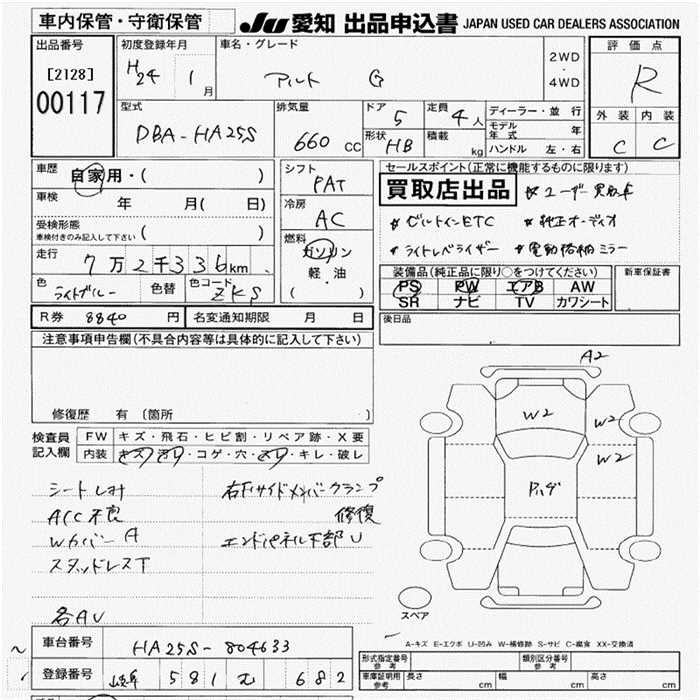 車内保管・守衛保管
JU 愛知 出品申込書 JAPAN USED CAR DEALERS ASSOCIATION
出品番号
[2128]
00117
初度登録年月
H24 1月
車名・グレード
アルト G
2WD
・
4WD
評価点
R
外装 内装
C C
型式
DBA-HA25S
排気量
660 CC
ドア 5
形状 HB
定員 4人
積載 kg
ディーラー・並行
モデル年式 年
ハンドル 左・右
車歴 自家用・( )
車検 年 月( 日)
受検形態
車検付きのみ記入して下さい ( )
走行 7万2千336km
色 ライトブルー 色替 色コード ZKS
シフト
PAT
冷房
AC
燃料
ガソリン
軽・油
( )
セールスポイント(正常に機能するものに限ります)
買取店出品 ※ユーザー買取車
※ビルトインETC ※純正オーディオ
※ライトレベライザー ※電動格納ミラー
装備品(純正品に限り○をつけてください)
PS PW エアB AW
SR ナビ TV カワシート
新車保証書
R券 8840 円 名変通知期限 月 日
後日品
注意事項申告欄(不具合内容等は具体的に記入して下さい)
修復歴 有 〔箇所 〕
検査員記入欄
FW キズ・飛石・ヒビ割・リペア跡・X要
内装 キズ・汚レ・コゲ・穴・スレ・キレ・破レ
シートしみ
A/C不良
WカバーA
スタッドレスT
各AU
右Fサイドメンバークランプ
修復
エンドパネル下部U
A2
W2
W2
W2
P.ハゲ
スペア
A-キズ E-エクボ U-凹み W-補修跡 S-サビ C-腐食 XX-交換済
車台番号 HA25S-804633
登録番号 岐阜 581 む 682
形式指定番号 参考
類別区分番号 参考
車庫証明用 参考 長さ cm 幅 cm 高さ cm